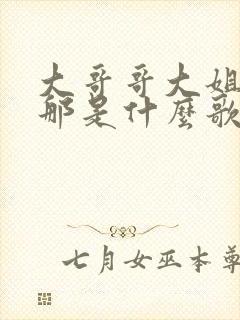 大哥哥大姐
那是什麼歌
七月女巫本尊